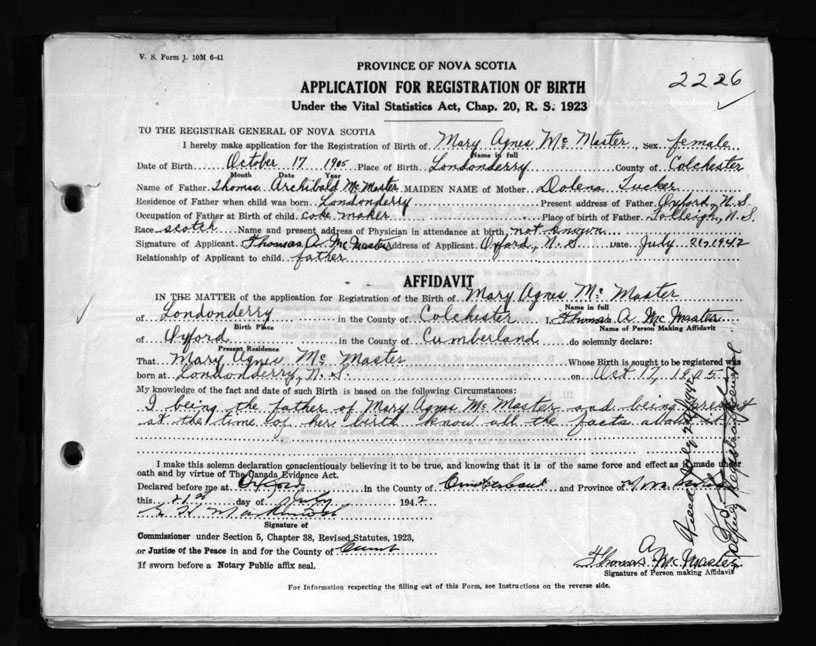 V. S. Form 1. 10M 6-41
PROVINCE OF NOVA SCOTIA
2226
APPLICATION FOR REGISTRATION OF BIRTH
Under the Vital Statistics Act, Chap. 20, R. S. 1923
TO THE REGISTRAR GENERAL OF NOVA SCOTIA
I hereby make application for the Registration of Birth of Mary Agnes Mc Master, Sex female
Name in full
Date of Birth October 17 1905 Place of Birth Londonderry County of Colchester
Month Date Year
Name of Father Thomas Archibald McMaster MAIDEN NAME of Mother Dolena Tucker
Residence of Father when child was born Londonderry Present address of Father Oxford, N.S
Occupation of Father at Birth of child coke maker Place of birth of Father N.S.
Race scotch Name and present address of Physician in attendance at birth, not known
Signature of Applicant Thomas A. McMaster Address of Applicant Oxford, N. S Date July 21, 1942
Relationship of Applicant to child father
AFFIDAVIT
IN THE MATTER of the application for Registration of the Birth of Mary Agnes Mc Master
Name in full
of Londonderry in the County of Colchester I, Thomas A. McMaster
Birth Place Name of Person Making Affidavit
of Oxford in the County of Cumberland do solemnly declare:
Present Residence
That Mary Agnes Mc Master Whose Birth is sought to be registered was
born at Londonderry, N.S. on Oct 17, 1905.
My knowledge of the fact and date of such Birth is based on the following Circumstances:
I being the father of Mary Agnes Mc Master and being present
at the time of her birth know all the facts about it
I make this solemn declaration conscientiously believing it to be true, and knowing that it is of the same force and effect as if made under
oath and by virtue of The Canada Evidence Act.
Declared before me at Oxford in the County of Cumberland and Province of Nova Scotia
this 21st day of July 1942
Signature of
Commissioner under Section 5, Chapter 38, Revised Statutes, 1923,
or Justice of the Peace in and for the County of Cumb
If sworn before a Notary Public affix seal.
Thomas A. McMaster
Signature of Person making Affidavit
For Information respecting the filling out of this Form, see Instructions on the reverse side.